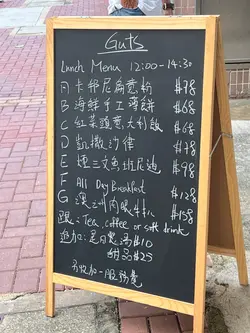 Guts
Lunch Menu 12:00-14:30
A 卡邦尼扁意粉 $78
B 海鮮手工薄餅 $68
C 紅菜頭意大利飯 $68
D 凱撒沙律 $78
E 煙三文魚班尼迪 $98
F All Day Breakfast $128
G 澳洲肉眼 $158
跟: Tea, coffee, or soft drink
追加: 是日餐湯 $10
甜品 $25
另收加一服務費